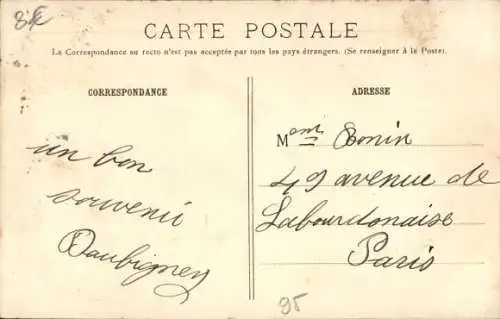 8€
CARTE POSTALE
La Correspondance au recto n'est pas acceptée par tous les pays étrangers. (Se renseigner à la Poste).
CORRESPONDANCE
un bon
souvenir
Daubigney
ADRESSE
Mme Bonin
49 avenue de
Labourdonaise
Paris
95